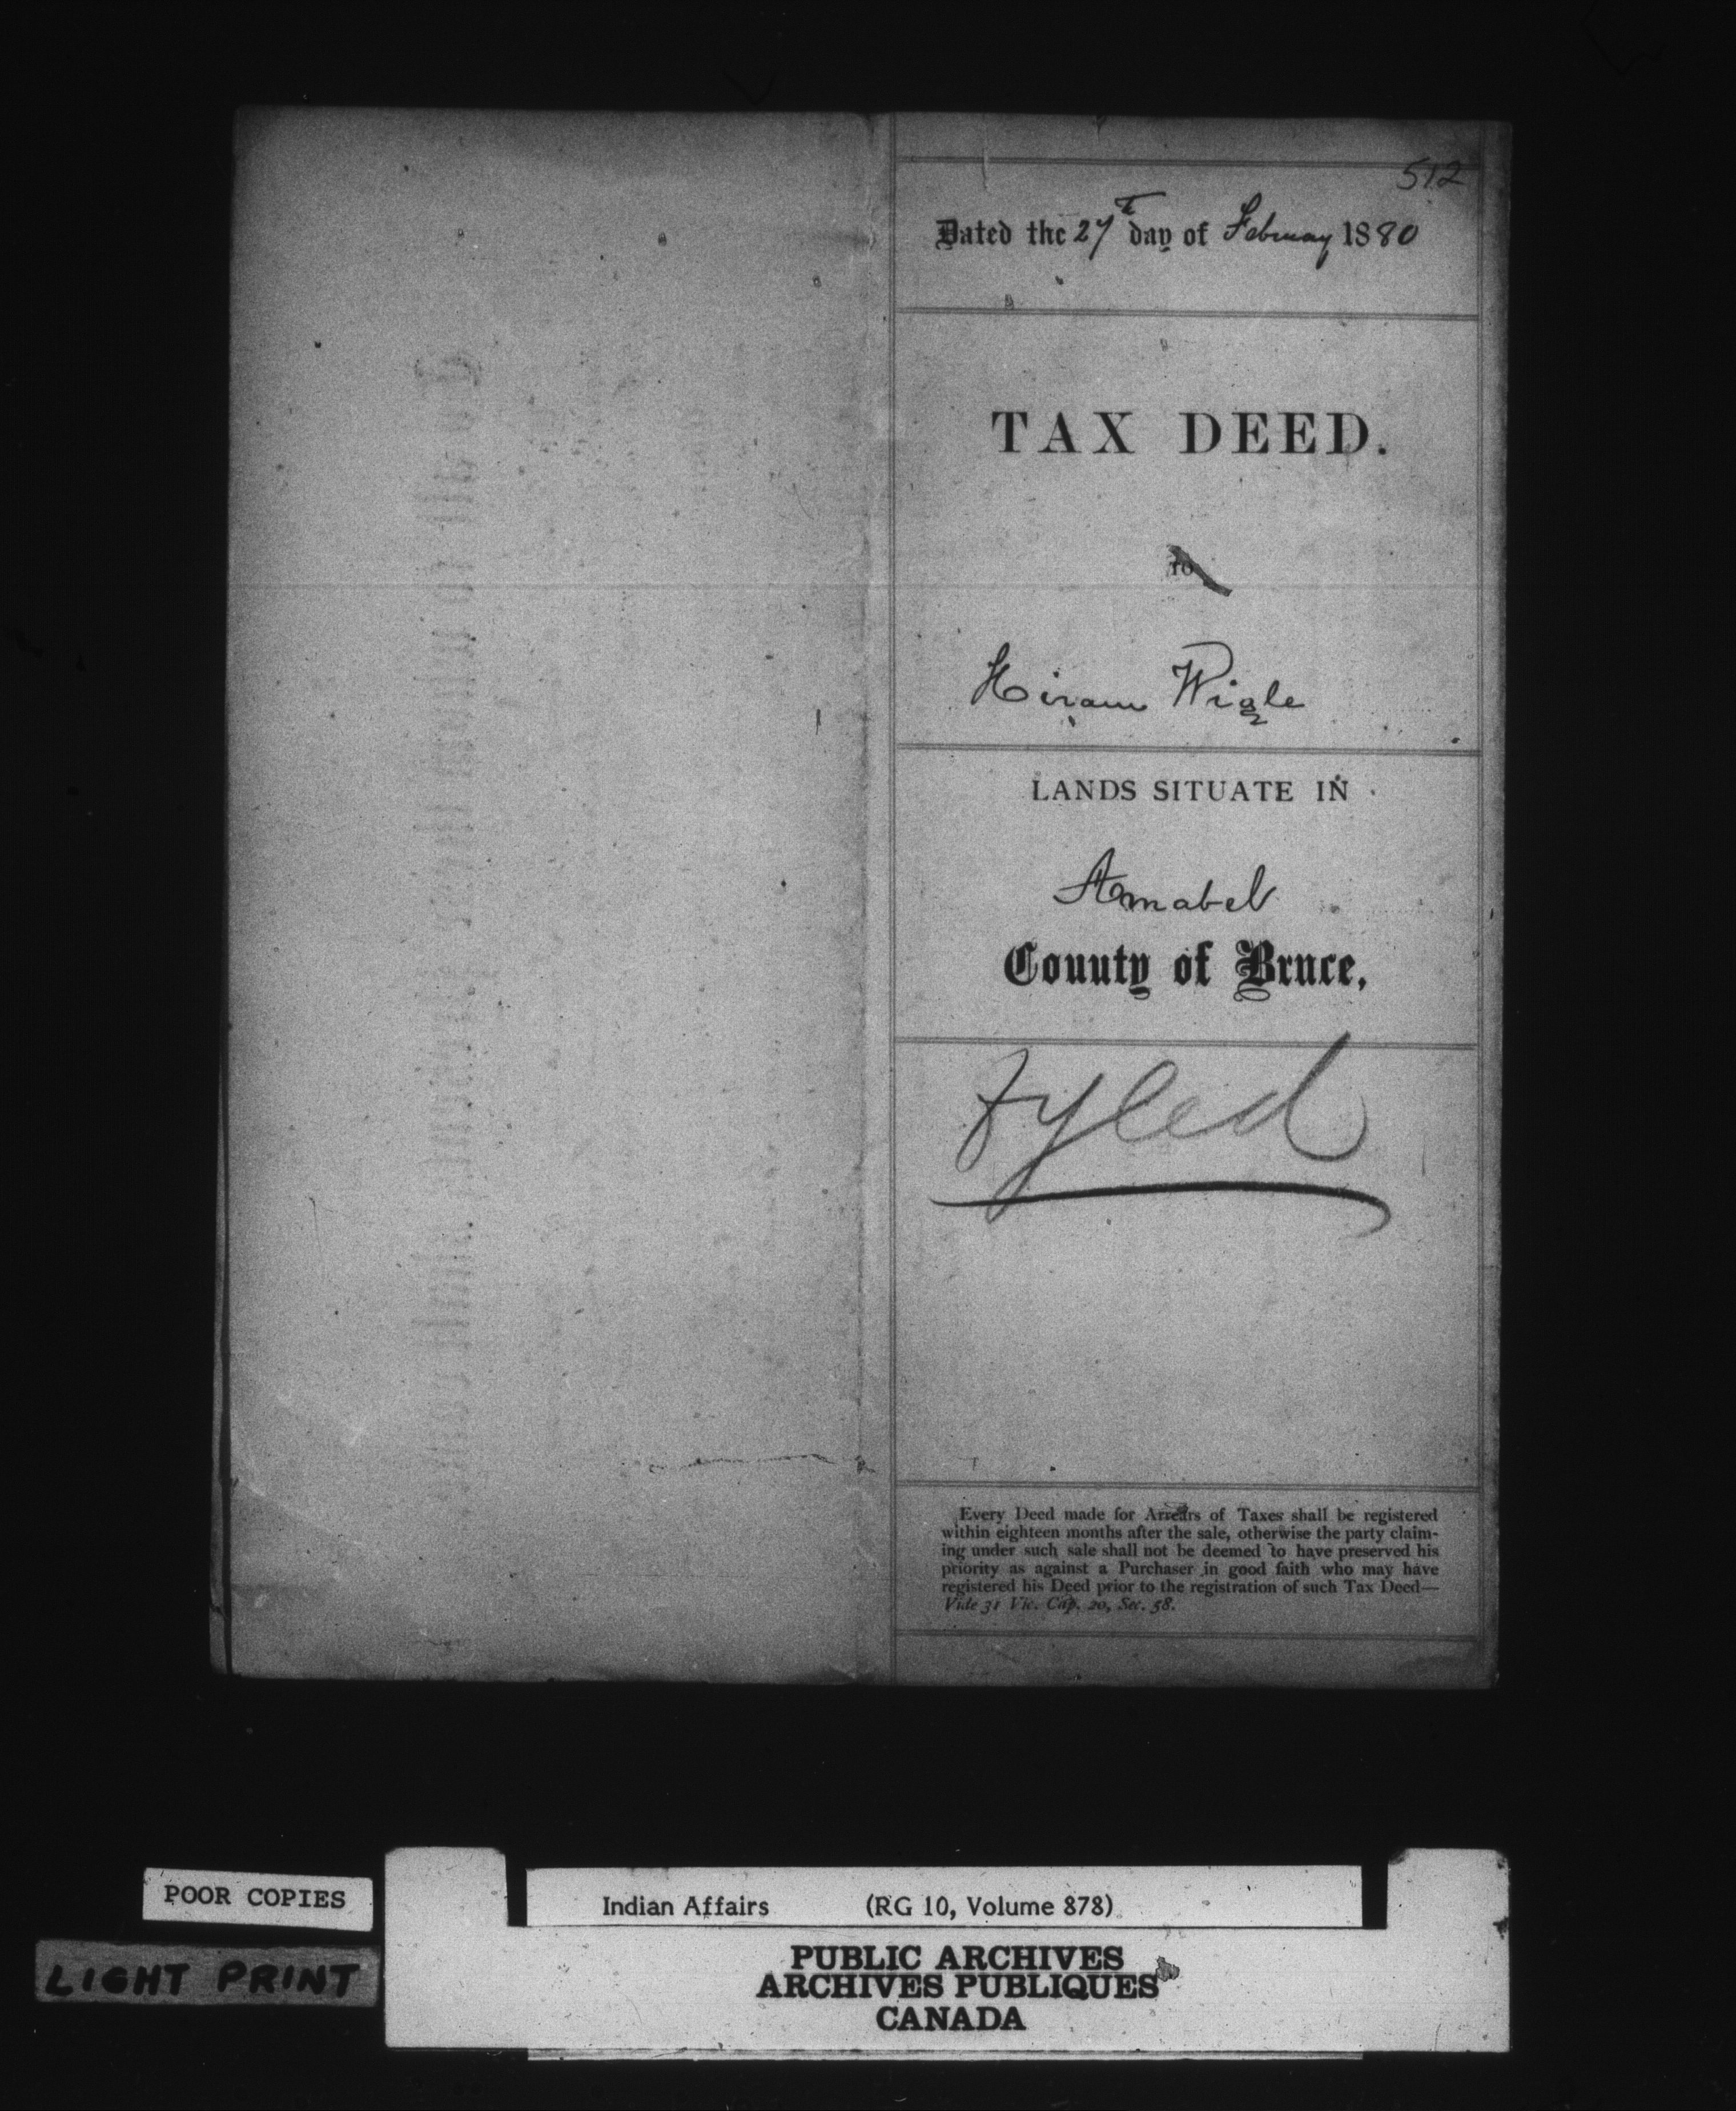 512
Dated the 27th day of February 1880
TAX DEED.
TO
Hiram Wigle
LANDS SITUATE IN
Amabel
County of Bruce,
Fyled
Every Deed made for Arrears of Taxes shall be registered
within eighteen months after the sale, otherwise the party claim-
ing under such sale shall not be deemed to have preserved his
priority as against a Purchaser in good faith who may have
registered his Deed prior to the registration of such Tax Deed—
Vide 31 Vic. Cap. 20, Sec. 58.
POOR COPIES
LIGHT PRINT
Indian Affairs (RG 10, Volume 878)
PUBLIC ARCHIVES
ARCHIVES PUBLIQUES
CANADA